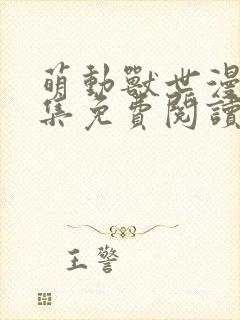 萌動獸世漫
集免費閱讀
王警